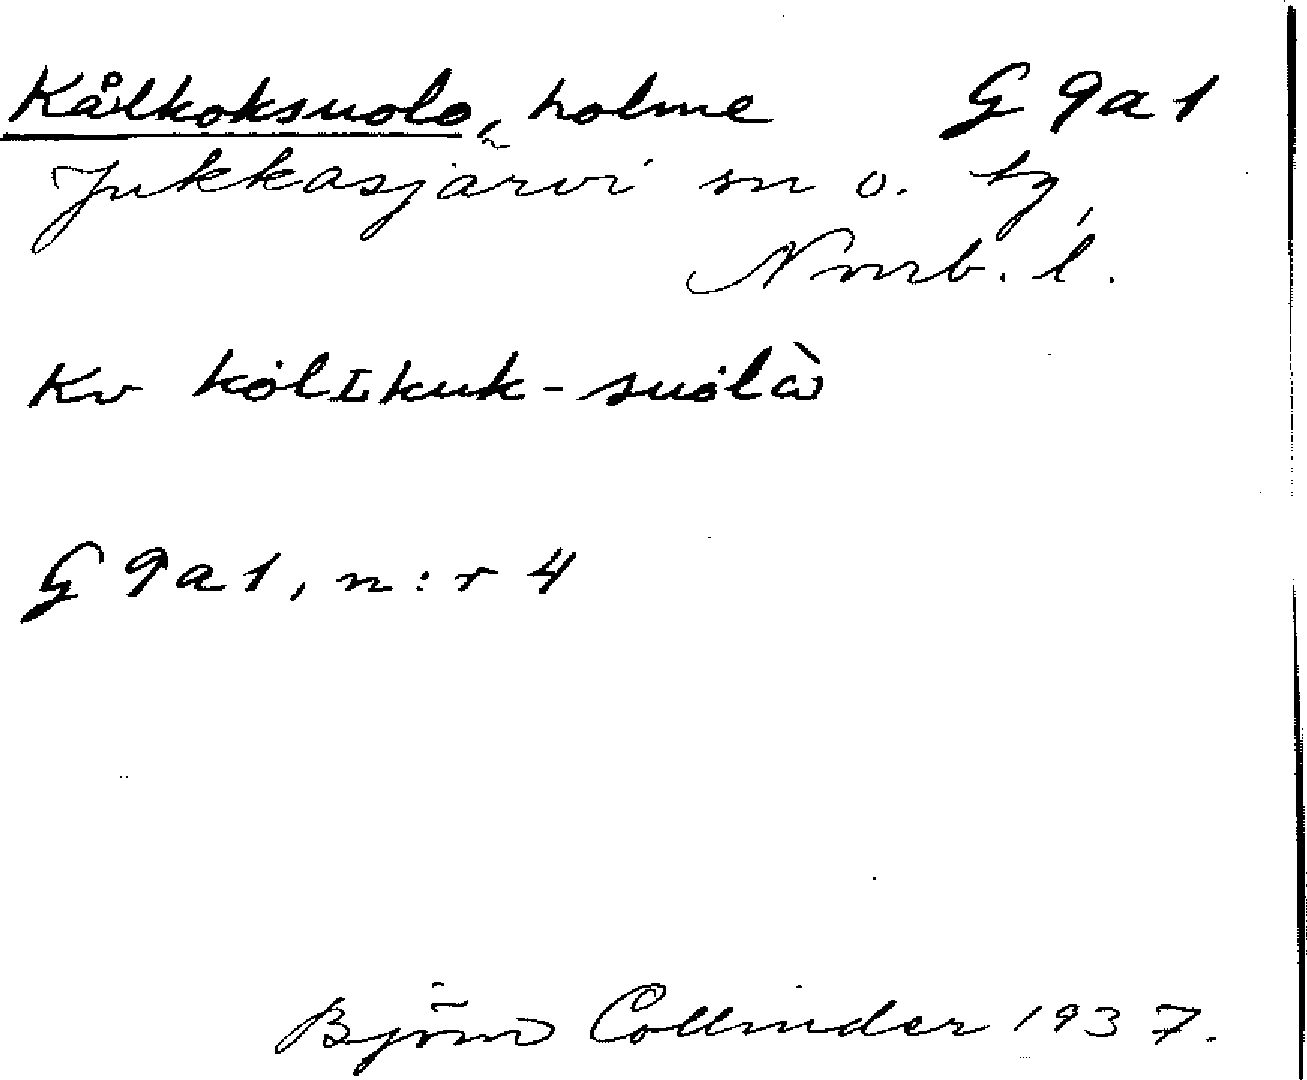 Kålkoksuolo, holme G 9a1
Jukkasjärvi sn o. tg,
Norrb. l.
Kv kòlɪkuk-suòlà
G 9a1, n:r 4
Björn Collinder 1937.